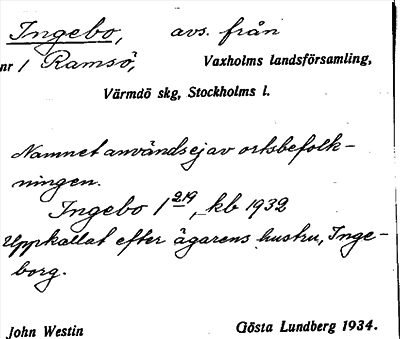 Ingebo, avs. från
nr 1 Ramsö, Vaxholms landsförsamling,
Värmdö skg, Stockholms l.
Namnet användsej av ortsbefolk-
ningen.
Ingebo 1 219, kb 1932
Uppkallat efter ägarens hustru, Inge-
borg.
John Westin Gösta Lundberg 1934.